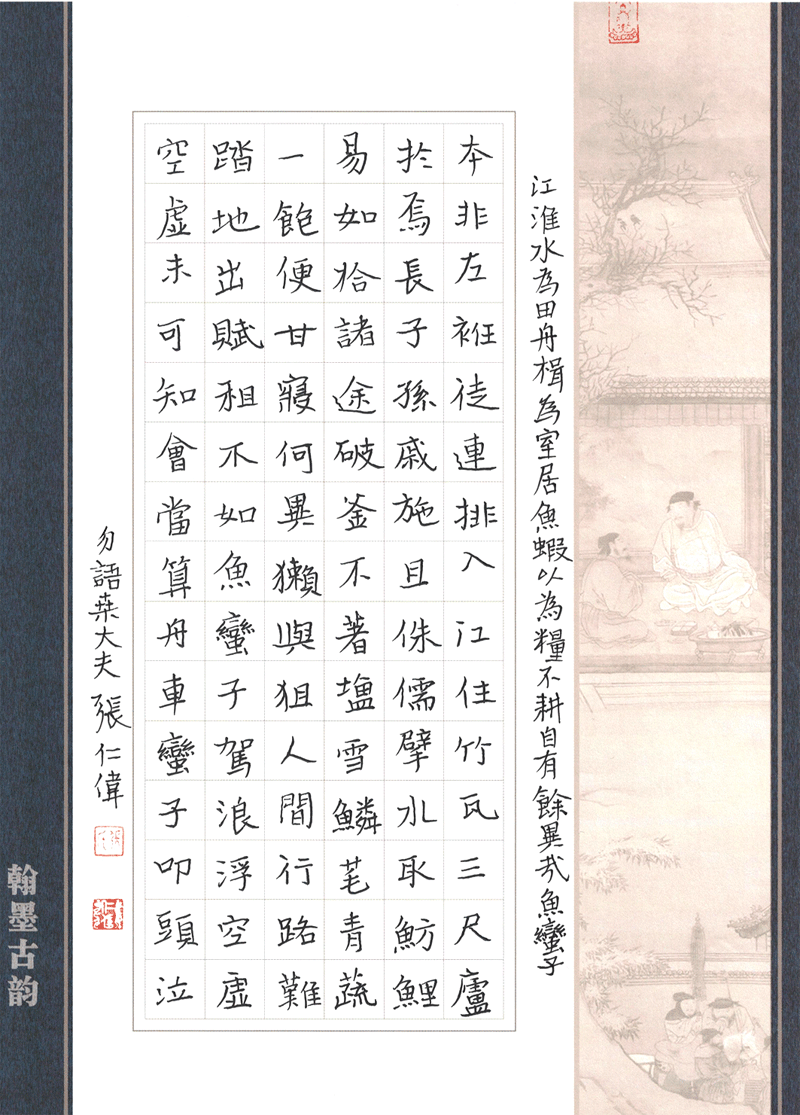 江淮水為田舟楫為室居魚蝦以為糧不耕自有餘異哉魚蠻子
本非左衽徒連排入江住竹瓦三尺廬
於焉長子孫戚施且侏儒擘水取魴鯉
易如拾諸途破釜不著塩雪鱗芼青蔬
一飽便甘寢何異獺與狙人間行路難
踏地出賦租不如魚蠻子駕浪浮空虛
空虛未可知會當算舟車蠻子叩頭泣
勿語桒大夫 張仁偉
翰墨古韵